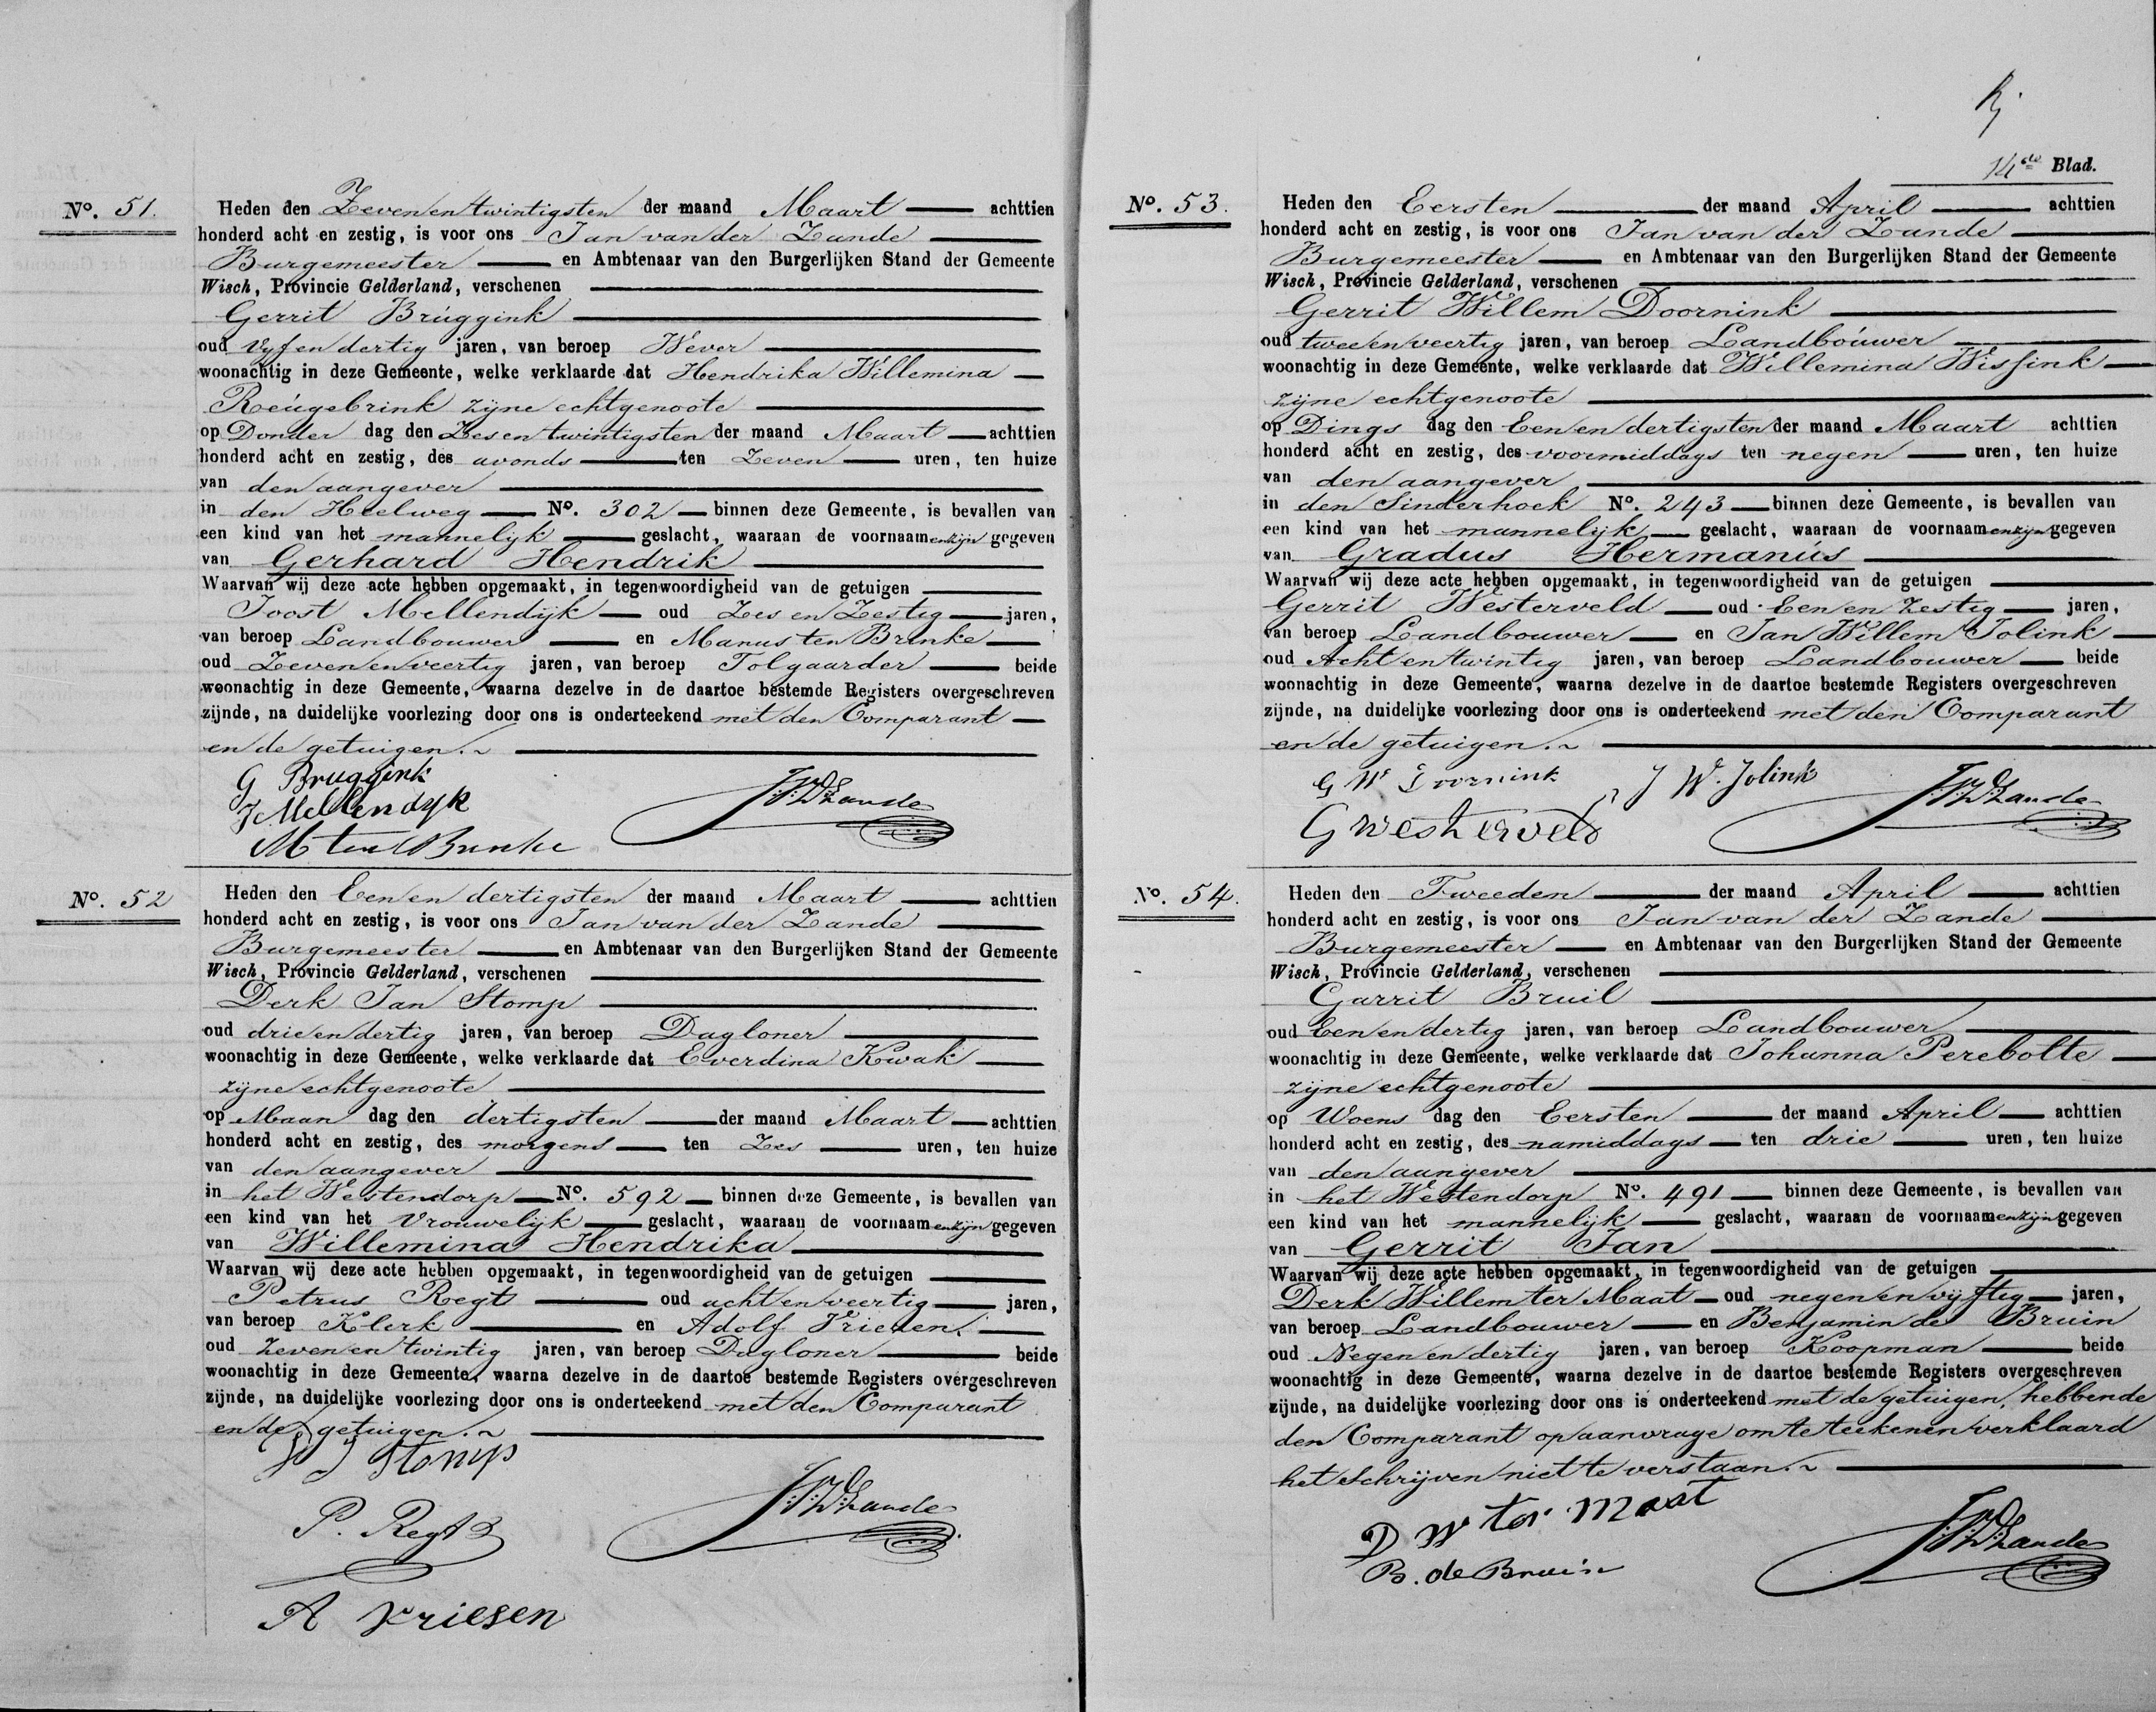 No. 51.
Heden den Zeven en twintigsten der maand Maart achttien
honderd acht en zestig, is voor ons Jan van der Zande
Burgemeester en Ambtenaar van den Burgerlijken Stand der Gemeente
Wisch, Provincie Gelderland, verschenen
Gerrit Brúggink
oud vyf en dertig jaren, van beroep Wever
woonachtig in deze Gemeente, welke verklaarde dat Hendrika Willemina
Reúgebrink zijne echtgenoote
op Donder dag den Zes en twintigsten der maand Maart achttien
honderd acht en zestig, des avonds ten Zeven uren, ten huize
van den aangever
in den Heelweg No. 302 binnen deze Gemeente, is bevallen van
een kind van het mannelijk geslacht, waaraan de voornaamen zijn gegeven
van Gerhard Hendrik
Waarvan wij deze acte hebben opgemaakt, in tegenwoordigheid van de getuigen
Joost Mellendijk oud Zes en Zestig jaren,
van beroep Landbouwer en Manus ten Brinke
oud Zeven en veertig jaren, van beroep Tolgaarder beide
woonachtig in deze Gemeente, waarna dezelve in de daartoe bestemde Registers overgeschreven
zijnde, na duidelijke voorlezing door ons is onderteekend met den Comparant
en de getuigen.
G Bruggink
J Mellendyk
M ten Brinke
JVDZande
No. 52
Heden den Een en dertigsten der maand Maart achttien
honderd acht en zestig, is voor ons Jan van der Zande
Burgemeester en Ambtenaar van den Burgerlijken Stand der Gemeente
Wisch, Provincie Gelderland, verschenen
Derk Jan Stomp
oud drie en dertig jaren, van beroep Dagloner
woonachtig in deze Gemeente, welke verklaarde dat Everdina Kwak
zijne echtgenoote
op Maan dag den dertigsten der maand Maart achttien
honderd acht en zestig, des morgens ten Zes uren, ten huize
van den aangever
in het Westendorp No. 592 binnen deze Gemeente, is bevallen van
een kind van het Vrouwelijk geslacht, waaraan de voornaamen zijn gegeven
van Willemina Hendrika
Waarvan wij deze acte hebben opgemaakt, in tegenwoordigheid van de getuigen
Petrus Regt oud acht en veertig jaren,
van beroep Klerk en Adolf Vriezen
oud Zeven en twintig jaren, van beroep Dagloner beide
woonachtig in deze Gemeente, waarna dezelve in de daartoe bestemde Registers overgeschreven
zijnde, na duidelijke voorlezing door ons is onderteekend met den Comparant
en de getuigen.
D J Stomp
P. Regt
A Vriesen
JVDZande
14de Blad.
No. 53.
Heden den Eersten der maand April achttien
honderd acht en zestig, is voor ons Jan van der Zande
Burgemeester en Ambtenaar van den Burgerlijken Stand der Gemeente
Wisch, Provincie Gelderland, verschenen
Gerrit Willem Doornink
oud twee en veertig jaren, van beroep Landboúwer
woonachtig in deze Gemeente, welke verklaarde dat Willemina Wissink
zijne echtgenoote
op Dings dag den Een en dertigsten der maand Maart achttien
honderd acht en zestig, des voormiddags ten negen uren, ten huize
van den aangever
in den Sinderhoek No. 243 binnen deze Gemeente, is bevallen van
een kind van het mannelijk geslacht, waaraan de voornaamen zijn gegeven
van Gradus Hermanús
Waarvan wij deze acte hebben opgemaakt, in tegenwoordigheid van de getuigen
Gerrit Westerveld oud Een en Zestig jaren,
van beroep Landbouwer en Jan Willem Jolink
oud Acht en twintig jaren, van beroep Landbouwer beide
woonachtig in deze Gemeente, waarna dezelve in de daartoe bestemde Registers overgeschreven
zijnde, na duidelijke voorlezing door ons is onderteekend met den Comparant
en de getuigen.
G W Doornink J W. Jolink
G Westerveld
JVDZande
No. 54.
Heden den Tweeden der maand April achttien
honderd acht en zestig, is voor ons Jan van der Zande
Burgemeester en Ambtenaar van den Burgerlijken Stand der Gemeente
Wisch, Provincie Gelderland, verschenen
Garrit Bruil
oud Een en dertig jaren, van beroep Landbouwer
woonachtig in deze Gemeente, welke verklaarde dat Johanna Perebolte
zijne echtgenoote
op Woens dag den Eersten der maand April achttien
honderd acht en zestig, des namiddags ten drie uren, ten huize
van den aangever
in het Westendorp No. 491 binnen deze Gemeente, is bevallen van
een kind van het mannelijk geslacht, waaraan de voornaamen zijn gegeven
van Gerrit Jan
Waarvan wij deze acte hebben opgemaakt, in tegenwoordigheid van de getuigen
Derk Willem ter Maat oud negen en vijftig jaren,
van beroep Landbouwer en Benjamin de Bruin
oud Negen en dertig jaren, van beroep Koopman beide
woonachtig in deze Gemeente, waarna dezelve in de daartoe bestemde Registers overgeschreven
zijnde, na duidelijke voorlezing door ons is onderteekend met de getuigen, hebbende
den Comparant op aanvrage om te teekenen verklaard
het Schrijven niet te verstaan.
D W ter Maat
B. de Bruin
JVDZande